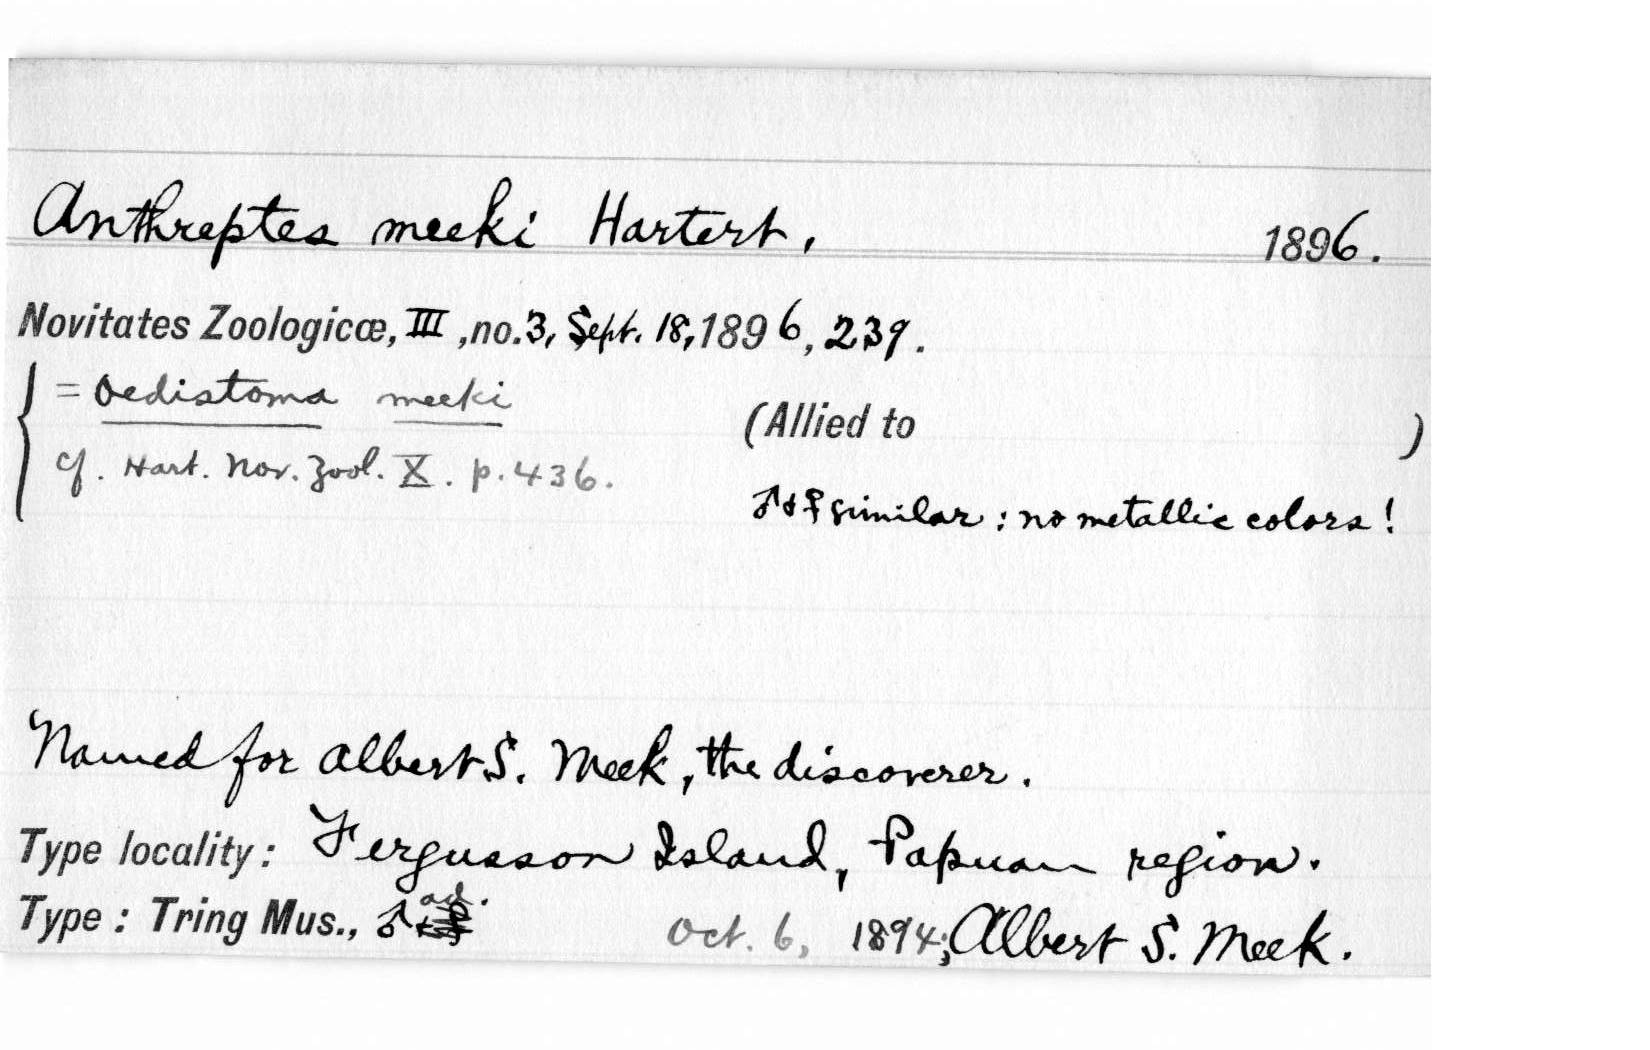 Anthreptes meeki Hartert, 1896.
Novitates Zoologicæ, III, no. 3, Sept. 18, 1896, 239.
= Oedistoma meeki
(Allied to )
cf. Hart. Nov. Zool. X. p. 436.
♂ & ♀ similar : no metallic colors !
Named for Albert S. Meek, the discoverer.
Type locality: Fergusson Island, Papuan region.
Type : Tring Mus., ♂ ad. Oct. 6, 1894; Albert S. Meek.